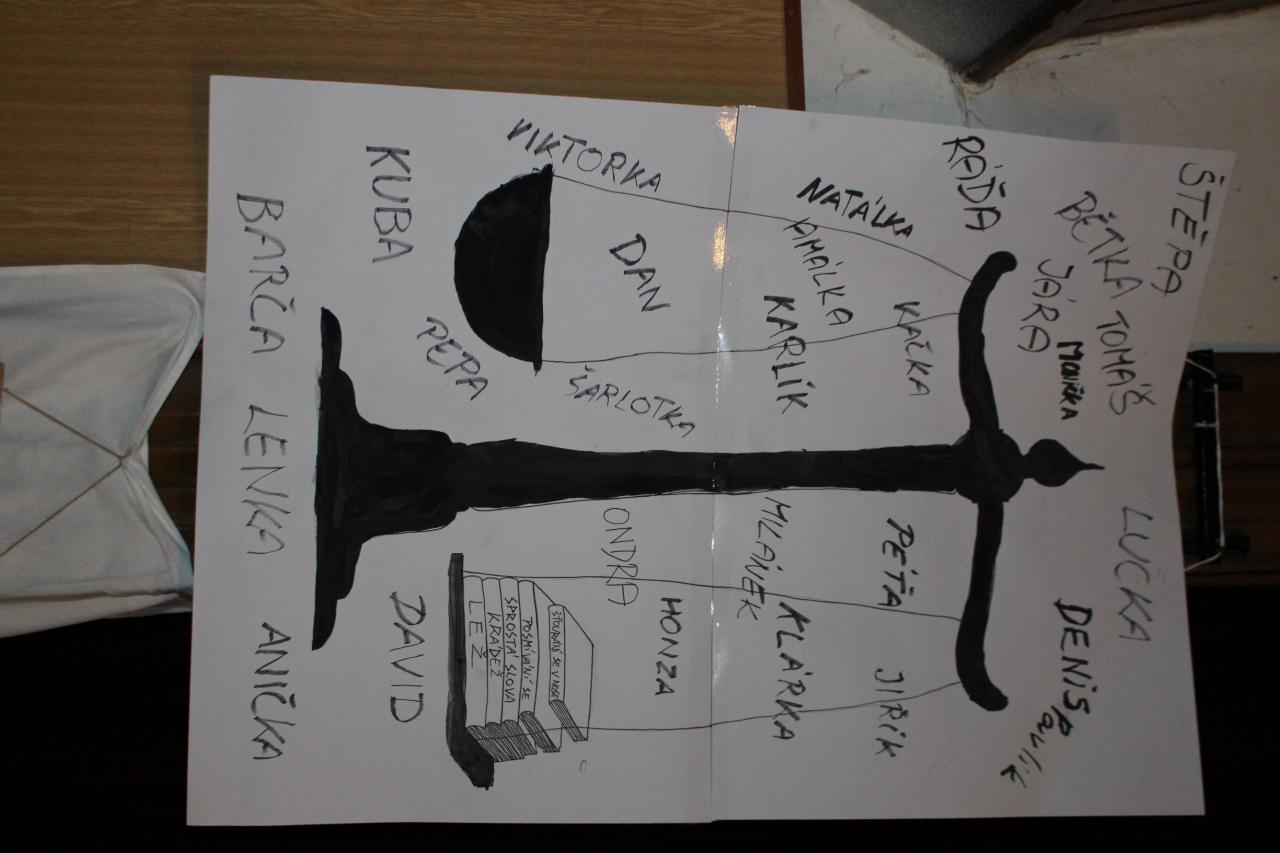 ŠTĚPA
LUCKA
BĚTKA TOMÁŠ
JÁRA
MONIČKA
DENIS
Pavlík
RÁĎA
KAČKA
PÉŤA
JIŘÍK
NATÁLKA
AMÁLKA
KARLÍK
MLÁNEK
KLÁRKA
DAN
ONDRA
HONZA
VIKTORKA
ŠARLOTKA
ŠŤOURÁNÍ SE V NOSE
POSMÍVÁNÍ SE
SPROSTÁ SLOVA
KRÁDEŽ
LEŽ
KUBA
PEPA
DAVID
BARČA LENKA ANIČKA